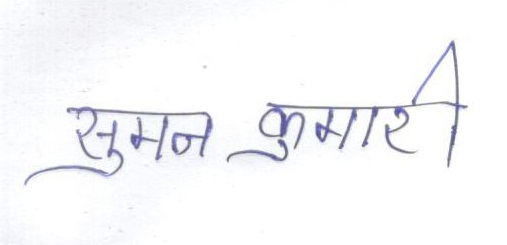 सुमन कुमारी